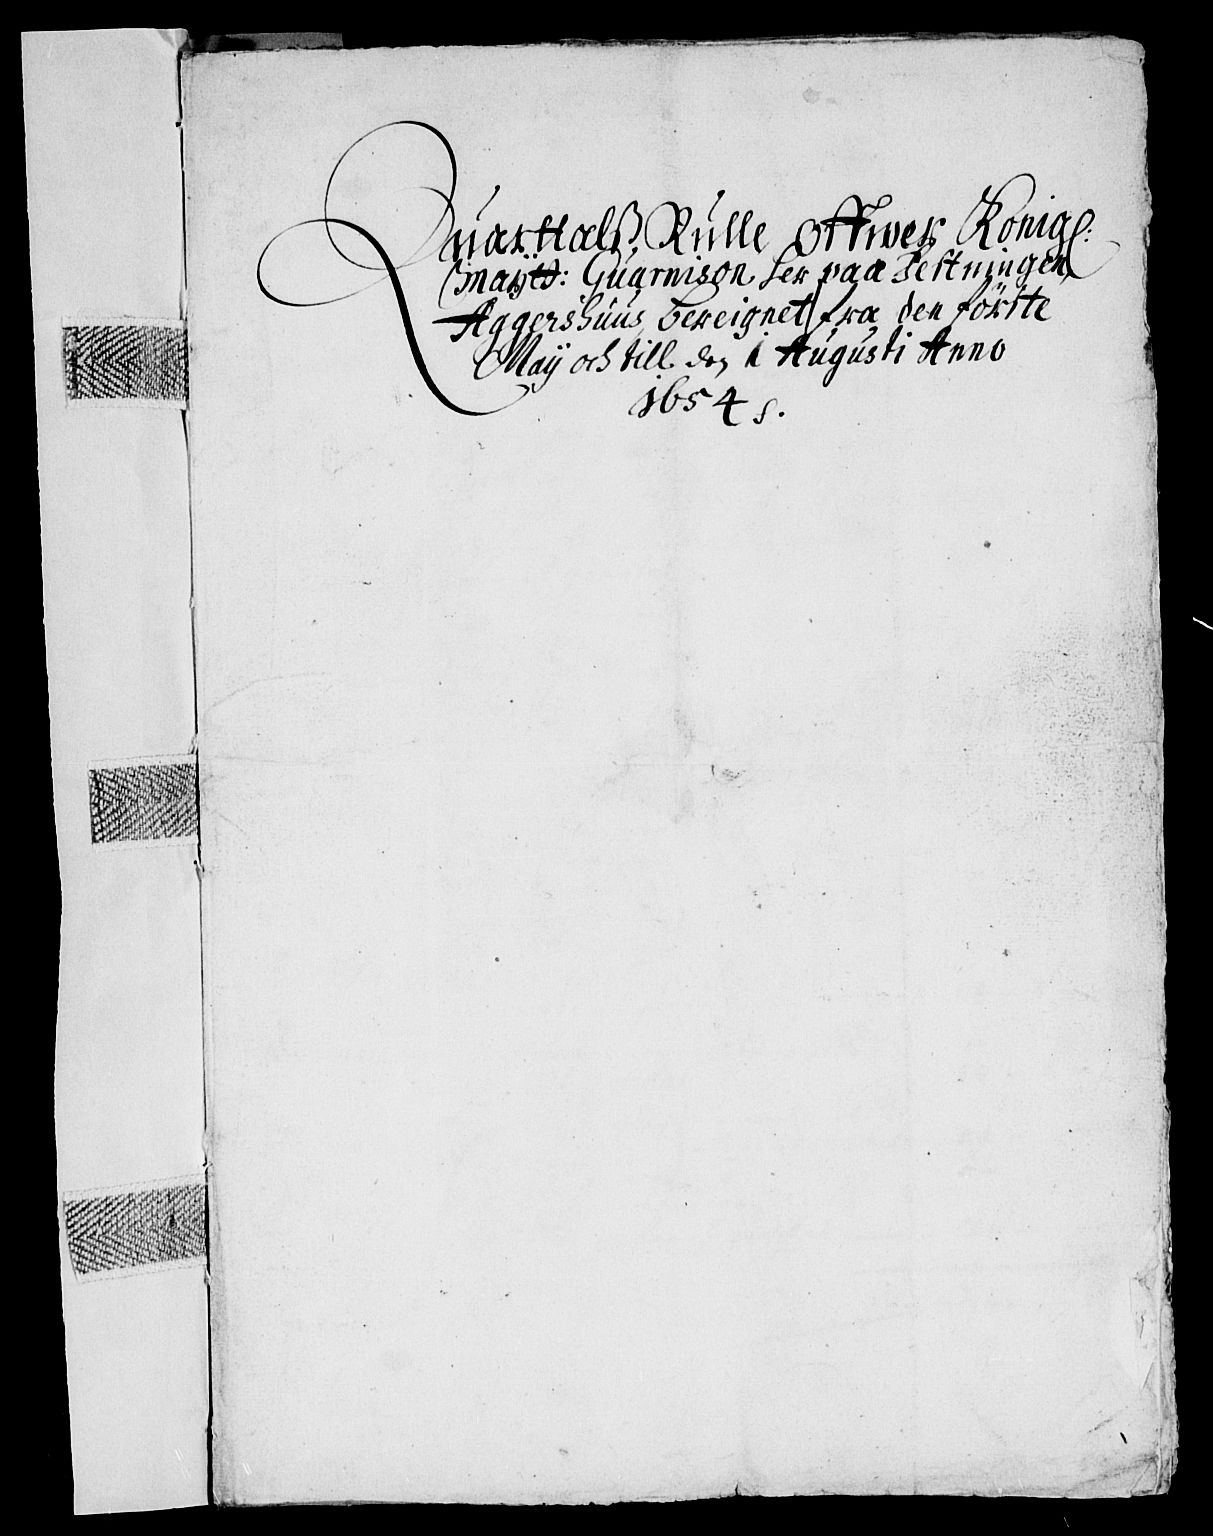 Quarttalß Rulle offwer Konigl:
Mayttz: Guarnison her paa Festningen
Aggershuus, bereignet fra den förste
Maij och till den 1 Augusti Anno
1654 s.